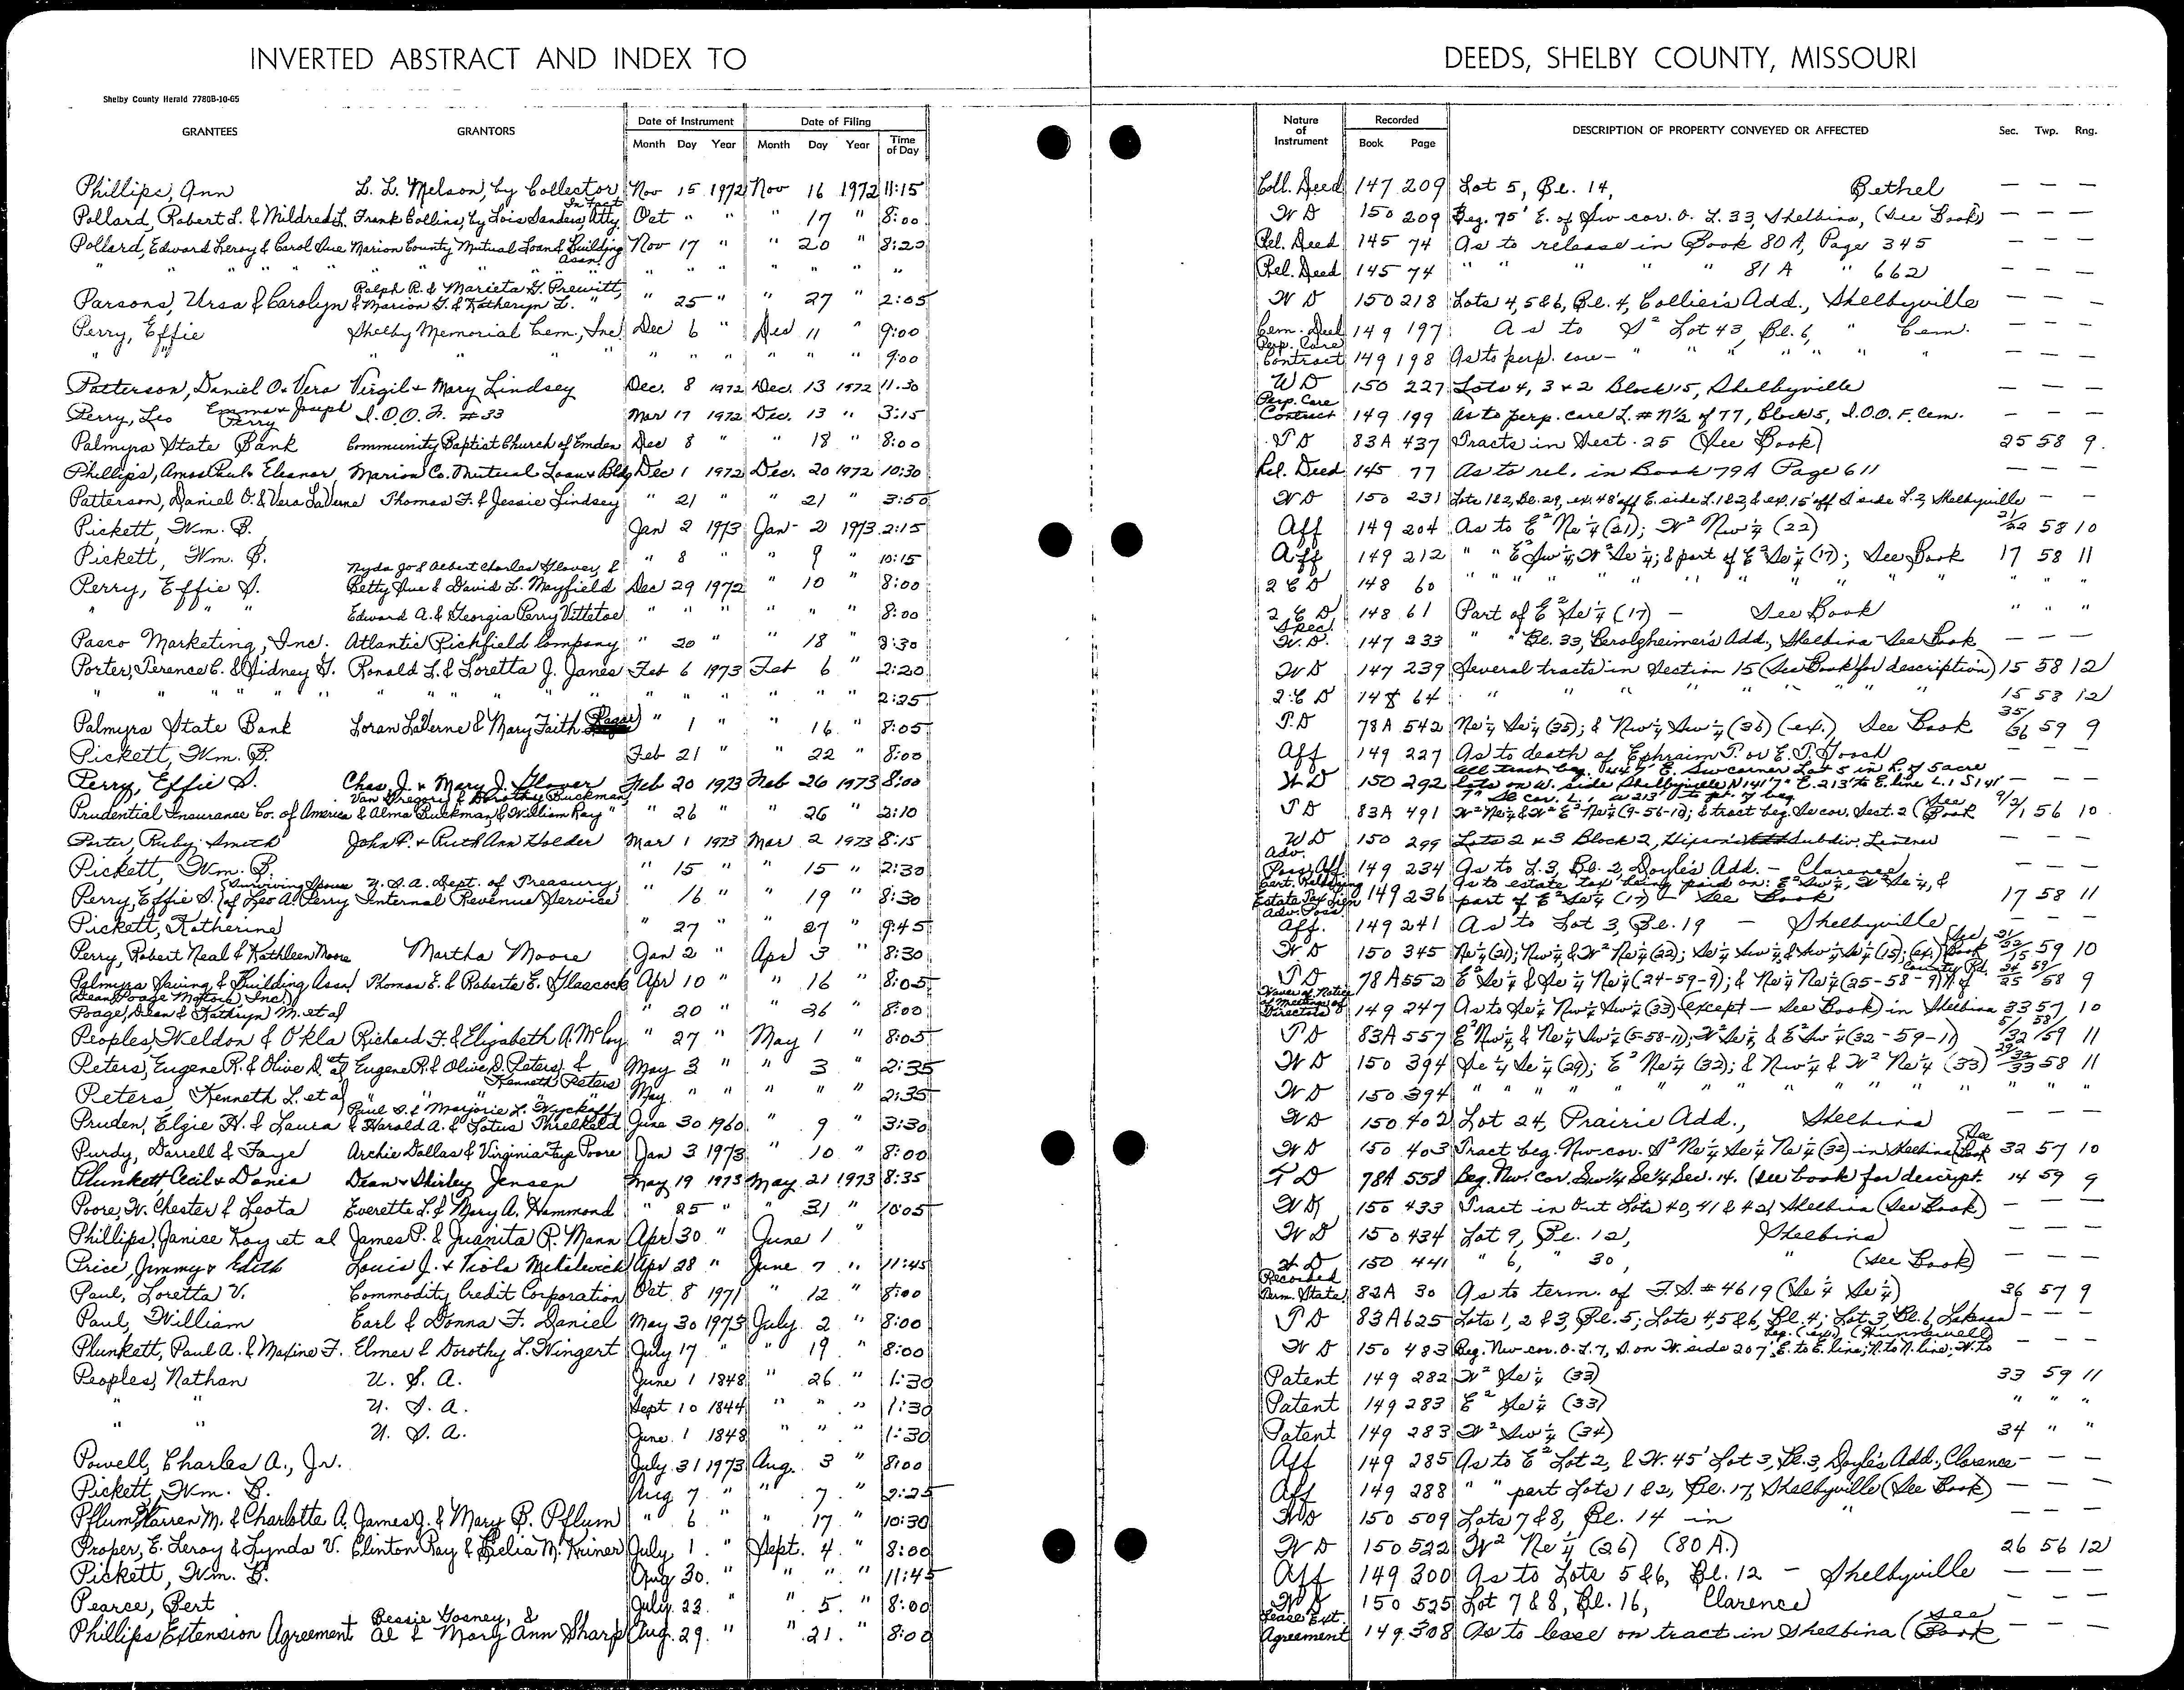 INVERTED ABSTRACT AND INDEX TO DEEDS, SHELBY COUNTY, MISSOURI
Shelby County Herald 7780B-10-65
GRANTEES GRANTORS Date of Instrument Month Day Year Date of Filing Month Day Year Time of Day Nature of Instrument Recorded Book Page DESCRIPTION OF PROPERTY CONVEYED OR AFFECTED Sec. Twp. Rng.
Phillips, Ann L. L. Melson, by Collector Nov 15 1972 Nov 16 1972 11:15 Coll. Deed 147 209 Lot 5, Bl. 14, Bethel — — —
Pollard, Robert L. & Mildred L. Frank Collins, by Lois Sanders, Atty. In Fact Oct " " " 17 " 8:00 W D 150 209 Beg. 75' E. of Sw cor. O. L. 33, Shelbina, (See Book) — — —
Pollard, Edward Leroy & Carol Sue Marion County Mutual Loan & Building Assn. Nov 17 " " 20 " 8:20 Rel. Deed 145 74 As to release in Book 80 A, Page 345 — — —
" " " " " " " " " " " " " " " " " " Rel. Deed 145 74 " " " " " 81 A " 662 — — —
Parsons, Ursa & Carolyn Ralph R. & Marieta G. Prewitt, & Marion G. & Katheryn L. " " 25 " " 27 " 2:05 W D 150 218 Lots 4, 5 & 6, Bl. 4, Collier's Add., Shelbyville — — —
Perry, Effie Shelby Memorial Cem., Inc. Dec 6 " Dec 11 " 9:00 Cem. Deed 149 197 As to S² Lot 43, Bl. 6, " Cem. — — —
" " " " " " " " " " " " 9:00 Perp. Care Contract 149 198 As to perp. care — " " " " " " — — —
Patterson, Daniel O. & Vera Virgil & Mary Lindsey Dec. 8 1972 Dec. 13 1972 11:30 WD 150 227 Lots 4, 3 & 2 Block 15, Shelbyville — — —
Perry, Leo Emma & Joseph Perry I.O.O.F. #33 Mar 17 1972 Dec. 13 " 3:15 Perp. Care Contract 149 199 As to perp. care L. # N½ of 77, Block 5, I.O.O.F. Cem. — — —
Palmyra State Bank Community Baptist Church of Emden Dec 8 " " 18 " 8:00 T D 83A 437 Tracts in Sect. 25 (See Book) 25 58 9
Phillips, Amos Paul & Eleanor Marion Co. Mutual Loan & Bldg Dec 1 1972 Dec. 20 1972 10:30 Rel. Deed 145 77 As to rel. in Book 79A Page 611 — — —
Patterson, Daniel O. & Vera LaVerne Thomas F. & Jessie Lindsey " 21 " " 21 " 3:50 W D 150 231 Lots 1 & 2, Bl. 29, ex. 48' off E. side L. 1 & 2, & ex. 15' off S side L. 2, Shelbyville — —
Pickett, Wm. B. Jan 2 1973 Jan 2 1973 2:15 Aff 149 204 As to E² Ne¼ (21); W² Nw¼ (22) 21/22 58 10
Pickett, Wm. B. " 8 " 9 " 10:15 Aff 149 212 " " E² Sw¼, W² Se¼; & part of E² Se¼ (17); See Book 17 58 11
Perry, Effie S. Nyda Jo & Albert Charles Glover, & Betty Sue & David L. Mayfield Dec 29 1972 " 10 " 8:00 2 C D 148 60 " " " " " " " " " " " " "
" " " Edward A. & Georgia Perry Vittetoe " " " " " " 8:00 2 C D 148 61 Part of E² Se¼ (17) — See Book " " "
Pasco Marketing, Inc. Atlantic Richfield Company " 20 " " 18 " 8:30 Spec. W. D. 147 233 " " Bl. 33, Berolzheimer's Add., Shelbina - See Book — — —
Porter, Terence C. & Sidney G. Ronald L. & Loretta J. Janes Feb 6 1973 Feb 6 " 2:20 W D 147 239 Several tracts in Section 15 (See Book for description) 15 58 12
" " " " " " " " " " " " " " " " " " 2:25 2 C D 148 64 " " " " " " " 15 58 12
Palmyra State Bank Loran LaVerne & Mary Faith " 1 " " 16 " 8:05 T D 78A 542 Ne¼ Se¼ (35); & Nw¼ Sw¼ (36) (ex.) See Book 35/36 59 9
Pickett, Wm. B. Feb 21 " " 22 " 8:00 Aff 149 227 As to death of Ephraim T. or E. T. Gooch — — —
Perry, Effie S. Chas. J. & Mary J. Glover Feb 20 1973 Feb 26 1973 8:00 W D 150 292 All tract beg. 447' E. Sw corner Lot 5 in R. of 5 acre lots on W. side Shelbyville, N 141'7" E. 213' to E. line L. 1 S 141' — — —
Prudential Insurance Co. of America Van Gregory & Dorothy Buckman, & Alma Buckman, & William Ray " " 26 " 26 " 2:10 T D 83A 491 W² Ne¼ & W² E² Ne¼ (9-56-10); & tract beg. Se cor. Sect. 2 (See Book 56 10
Porter, Ruby Smith John P. & Ruth Ann Holder Mar 1 1973 Mar 2 1973 8:15 WD 150 299 Lots 2 & 3 Block 2, Subdiv. — — —
Pickett, Wm. B. " 15 " " 15 " 2:30 Adv. Poss. Aff 149 234 As to L. 3, Bl. 2, Doyle's Add. — Clarence — — —
Perry, Effie S. (Surviving Spouse of Leo A. Perry U. S. A. Dept. of Treasury, Internal Revenue Service " 16 " " 19 " 8:30 Estate Tax Lien 149 236 As to estate tax being paid on: E² Sw¼, W² Se¼, & part of E² Se¼ (17) — See Book 17 58 11
Pickett, Katherine " 27 " " 27 " 9:45 Adv. Poss. Aff. 149 241 As to Lot 3, Bl. 19 — Shelbyville — — —
Perry, Robert Neal & Kathleen Moore Martha Moore Jan 2 " Apr 3 " 8:30 W D 150 345 Ne¼ (21); Nw¼ & W² Ne¼ (22); Se¼ Sw¼ & Sw¼ Se¼ (15); (ex.) (See Book 21/22/15 59 10
Palmyra Saving & Building Assn. Thomas E. & Roberta E. Glascock Apr 10 " " 16 " 8:05 T D 78A 552 E² Se¼ & Se¼ Ne¼ (24-59-9); & Ne¼ Ne¼ (25-58-9) N. of County Rd. 24/25 59/58 9
(Dean Poage Motors, Inc.) Poage, Dean & Kathryn M. et al " 20 " " 26 " 8:00 Waiver of Notice of Meeting of Directors 149 247 As to Se¼ Nw¼ Sw¼ (33) (except — See Book) in Shelbina 33 57 10
Peoples, Weldon & Okla Richard F. & Elizabeth A. McCoy " 27 " May 1 " 8:05 T D 83A 557 E² Nw¼ & Ne¼ Sw¼ (5-58-11); W² Se¼ & E² Sw¼ (32-59-11) 5/32 58/59 11
Peters, Eugene R. & Olive D. et al Eugene R. & Olive D. Peters, & Kenneth Peters May 3 " " 3 " 2:35 W D 150 394 Se¼ Se¼ (29); E² Ne¼ (32); & Nw¼ & W² Ne¼ (33) 29/32/33 58 11
Peters, Kenneth L. et al " " " May " " " " " 2:35 W D 150 394 " " " " " " " " " " " " "
Pruden, Elgie H. & Laura Paul S. & Marjorie L. Wyckoff, & Harold A. & Lotus Threlkeld June 30 1960 " 9 " 3:30 W D 150 402 Lot 24, Prairie Add., Shelbina — — —
Purdy, Darrell & Faye Archie Dallas & Virginia Faye Poore Jan 3 1973 " 10 " 8:00 W D 150 403 Tract beg. Nw cor. S² Ne¼ Se¼ Ne¼ (32) in Shelbina (See Book 32 57 10
Plunkett, Cecil & Donia Dean & Shirley Jensen May 19 1973 May 21 1973 8:35 T D 78A 558 Beg. Nw. Cor. Sw¼ Se¼ Sec. 14. (see book for descript. 14 59 9
Poore, W. Chester & Leota Everette L. & Mary A. Hammond " 25 " " 31 " 10:05 W D 150 433 Tract in Out Lots 40, 41 & 42, Shelbina (See Book) — — —
Phillips, Janice Kay et al James P. & Juanita P. Mann Apr 30 " June 1 " W D 150 434 Lot 9, Bl. 12, Shelbina — — —
Price, Jimmy & Edith Louis J. & Viola Apr 28 " June 7 " 11:45 W D 150 441 " 6, " 30, " (See Book) — — —
Paul, Loretta V. Commodity Credit Corporation Oct. 8 1971 " 12 " 8:00 Recorded Term. State. 82A 30 As to term. of F. S. #4619 (Se¼ Se¼) 36 57 9
Paul, William Earl & Donna F. Daniel May 30 1973 July 2 " 8:00 T D 83A 625 Lots 1, 2 & 3, Bl. 5; Lots 4, 5 & 6, Bl. 4; Lot 3, Bl. 6, Lakenan — — —
Plunkett, Paul A. & Maxine F. Elmer & Dorothy L. Wingert July 17 " " 19 " 8:00 W D 150 483 Beg. Nw cor. O. L. 7, S. on W. side 207', E. to E. line; N. to N. line; W. to beg. (ex.) (Hunnewell) — — —
Peoples, Nathan U. S. A. June 1 1848 " 26 " 1:30 Patent 149 282 W² Se¼ (33) 33 59 11
" " U. S. A. Sept 10 1844 " " " 1:30 Patent 149 283 E² Se¼ (33) " " "
" " U. S. A. June 1 1848 " " " 1:30 Patent 149 283 W² Sw¼ (34) 34 " "
Powell, Charles A., Jr. July 31 1973 Aug. 3 " 8:00 Aff 149 285 As to E² Lot 2, & W. 45' Lot 3, Bl. 3, Doyle's Add., Clarence — — —
Pickett, Wm. B. Aug 7 " " 7 " 2:25 Aff 149 288 " " part Lots 1 & 2, Bl. 17, Shelbyville (See Book) — — —
Pflum, Warren M. & Charlotte A. James J. & Mary B. Pflum " 6 " " 17 " 10:30 WD 150 509 Lots 7 & 8, Bl. 14 in " — — —
Proper, E. Leroy & Lynda V. Clinton Ray & Delia M. Kriner July 1 " Sept. 4 " 8:00 W D 150 522 W² Ne¼ (26) (80 A.) 26 56 12
Pickett, Wm. B. Aug 30. " " " " 11:45 Aff 149 300 As to Lots 5 & 6, Bl. 12 — Shelbyville — — —
Pearce, Bert July 23. " " 5. " 8:00 W D 150 525 Lot 7 & 8, Bl. 16, Clarence — — —
Phillips Extension Agreement Bessie Gosney, & Al & Mary Ann Sharp Aug. 29. " " 21. " 8:00 Lease Ext. Agreement 149 308 As to lease on tract in Shelbina (See Book — — —